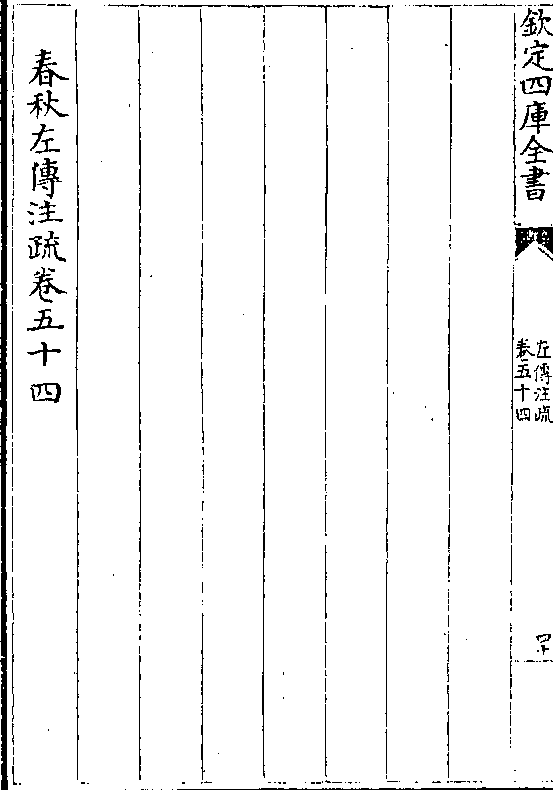 欽定四庫全書
左傳注疏
卷五十四
四十
春秋左傳注疏卷五十四